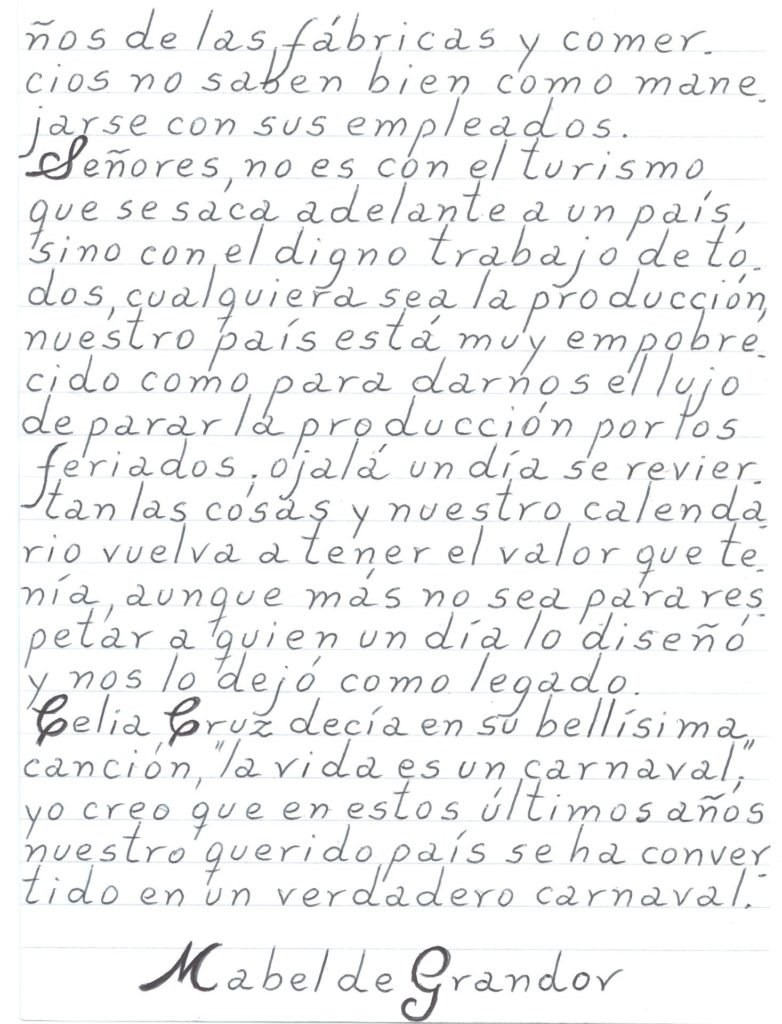 ños de las fábricas y comer-
cios no saben bien como mane-
jarse con sus empleados.
Señores, no es con el turismo
que se saca adelante a un país,
sino con el digno trabajo de to-
dos, cualquiera sea la producción,
nuestro país está muy empobre-
cido como para darnos el lujo
de parar la producción por los
feriados, ojalá un día se revier-
tan las cosas y nuestro calenda-
rio vuelva a tener el valor que te-
nía, aunque más no sea para res-
petar a quien un día lo diseñó
y nos lo dejó como legado.
Celia Cruz decía en su bellísima
canción, "la vida es un carnaval",
yo creo que en estos últimos años
nuestro querido país se ha conver-
tido en un verdadero carnaval.-
Mabel de Grandor